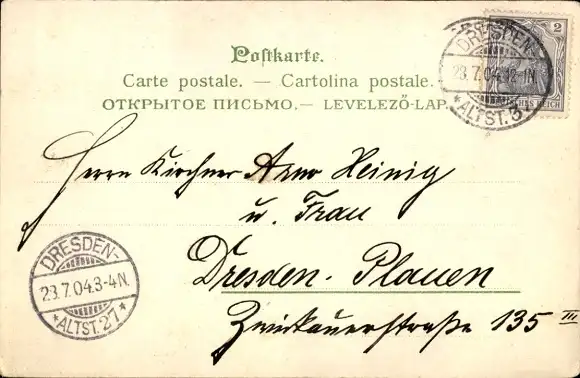 Postkarte.
Carte postale. — Cartolina postale.
ОТКРЫТОЕ ПИСЬМО.— LEVELEZŐ-LAP.
DRESDEN-
23.7.04.12-1N.
*ALTST.
2
Herrn Kirchner Arno Heinig
u. Frau
Dresden-Plauen
Zwickauerstraße 135 III
DRESDEN-
23.7.04.3-4N.
*ALTST.27*